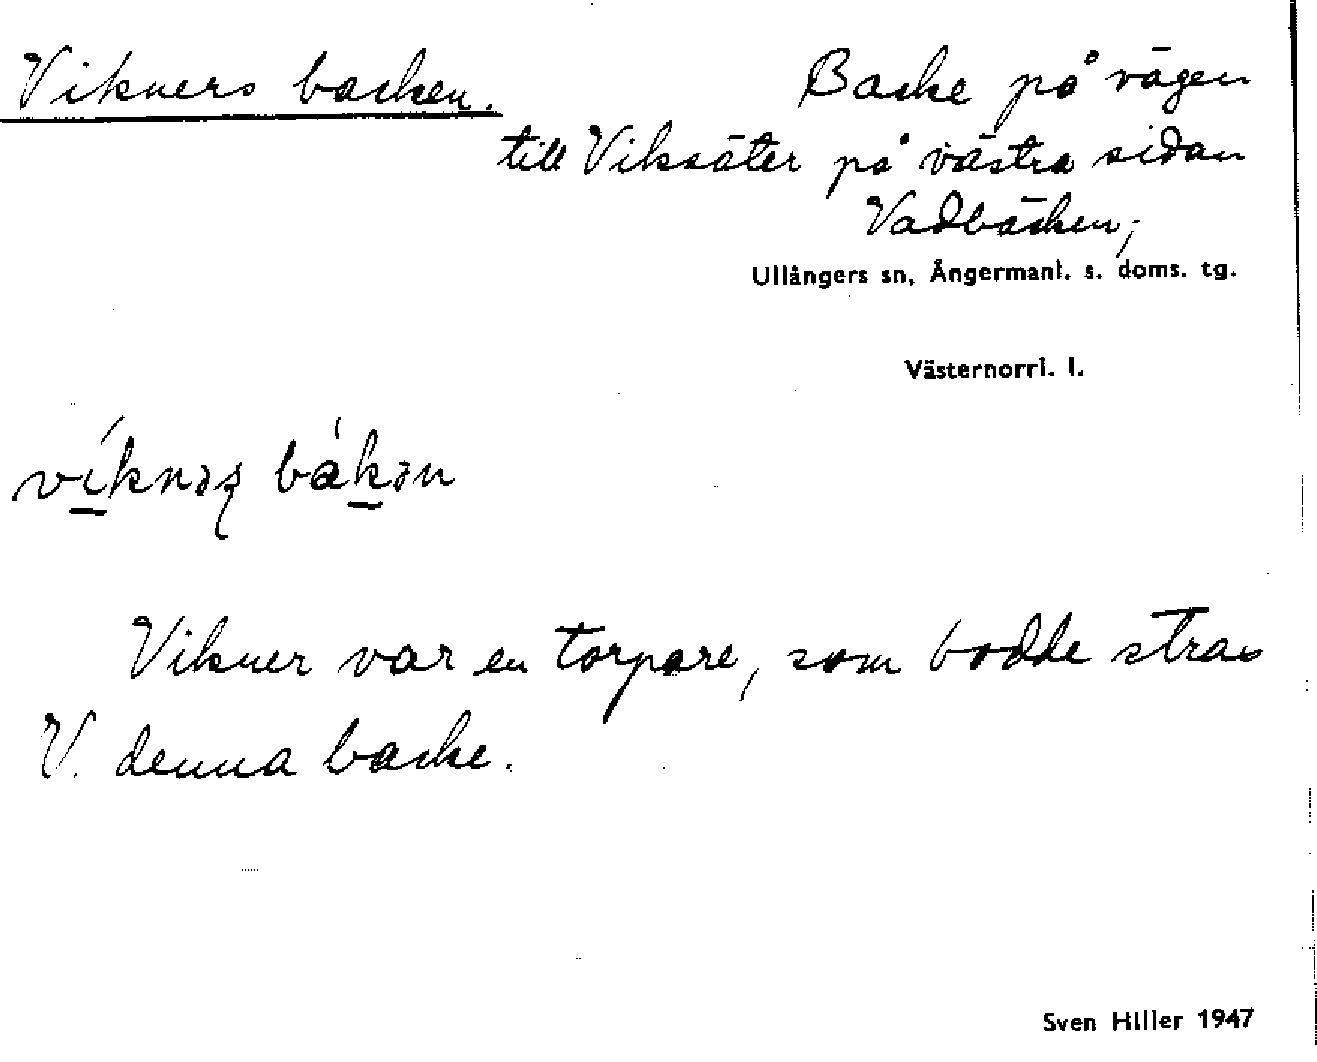 Vikners backen. Backe på vägen
till Viksäter på västra sidan
Vadbäcken,
Ullångers sn, Ångermanl. s. doms. tg.
Västernorrl. l.
Vikner var en torpare, som bodde strax
V. denna backe.
Sven Hiller 1947